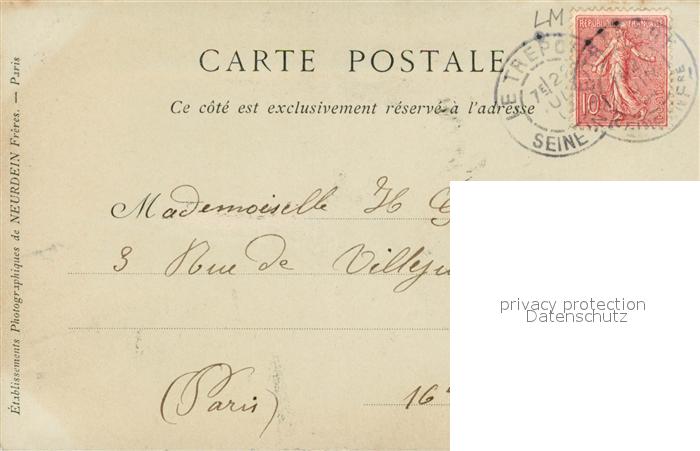 LM
CARTE POSTALE
RÉPUBLIQUE FRANÇAISE
10
LE TREPORT
SEINE
Ce côté est exclusivement réservé à l'adresse
Mademoiselle H G
3 Rue de Villeju
(Paris) 16
privacy protection
Datenschutz
Établissements Photographiques de NEURDEIN Frères. — Paris